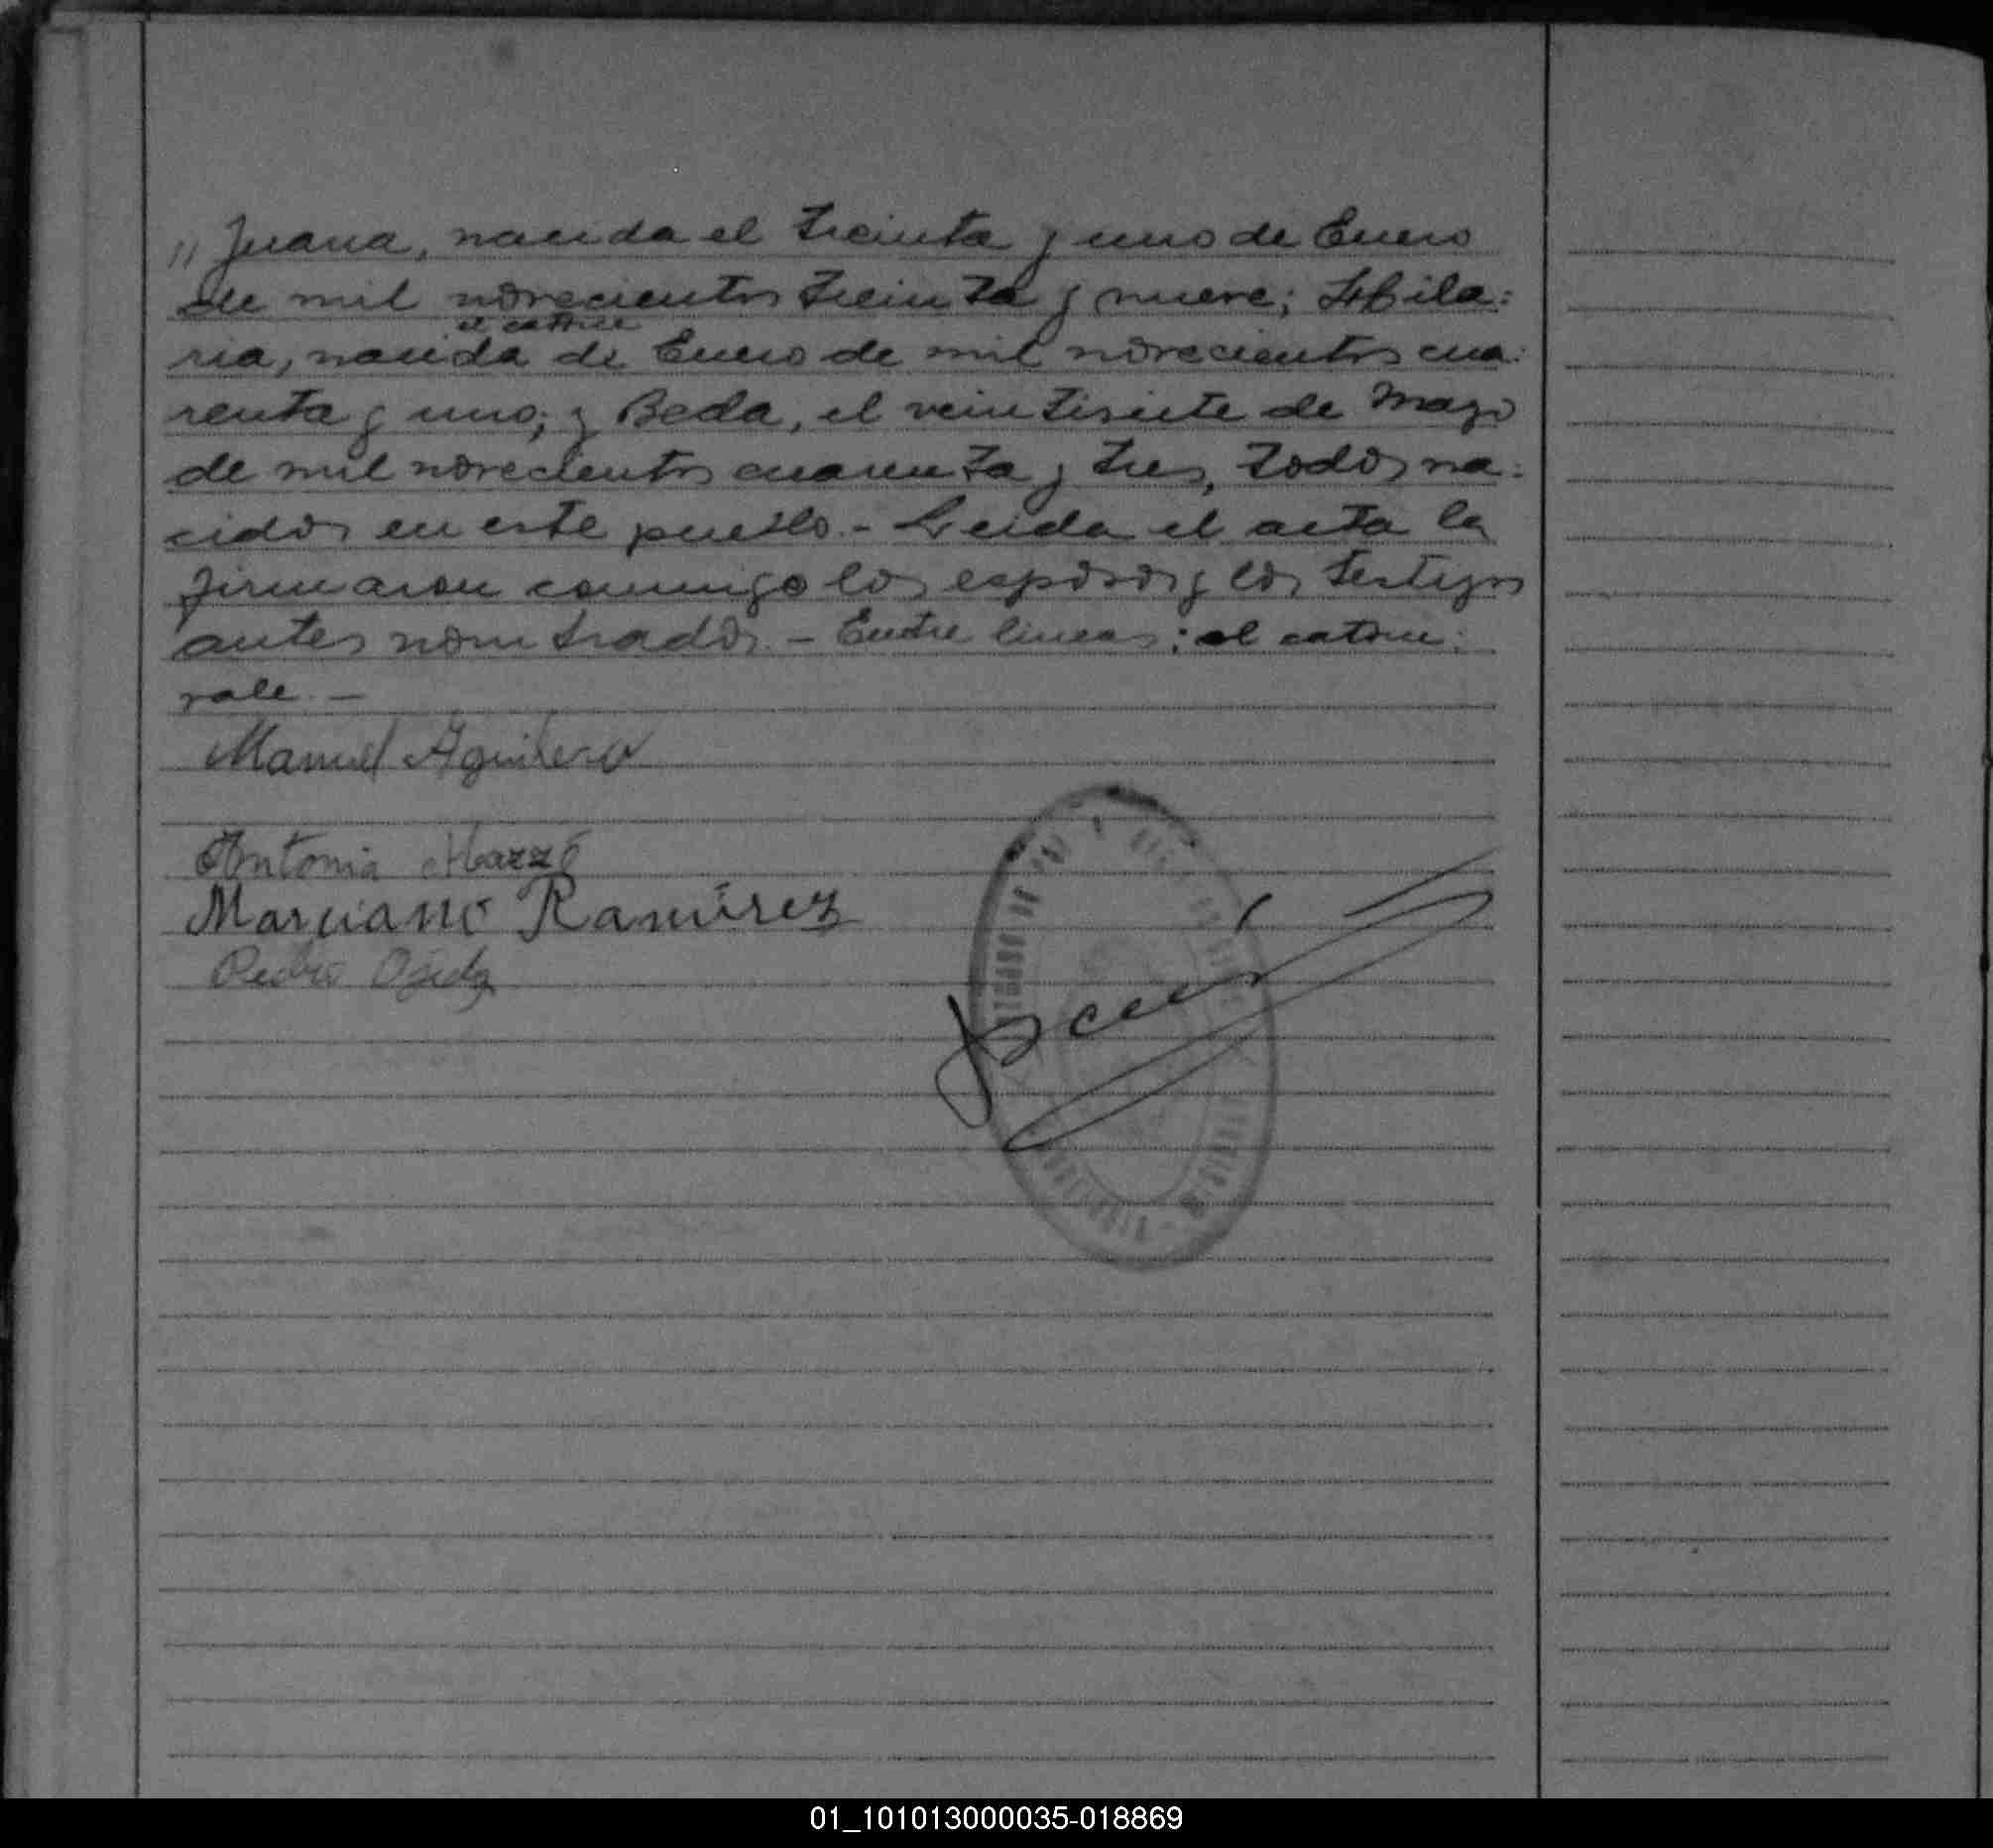 " Juana, nacida el treinta y uno de Enero
de mil novecientos treinta y nueve; Hila:
el catorce
ria, nacida de Enero de mil novecientos cua:
renta y uno; y Beda, el veintisiete de Mayo
de mil novecientos cuarenta y tres, todos na:
cidos en este pueblo.- Leida el acta la
firmaron conmigo los esposos y los testigos
antes nombrados.- Entre lineas: el catorce:
vale.-
Manuel Aguilera
Antonia
Marciano Ramírez
Pedro Ojeda
01_101013000035-018869